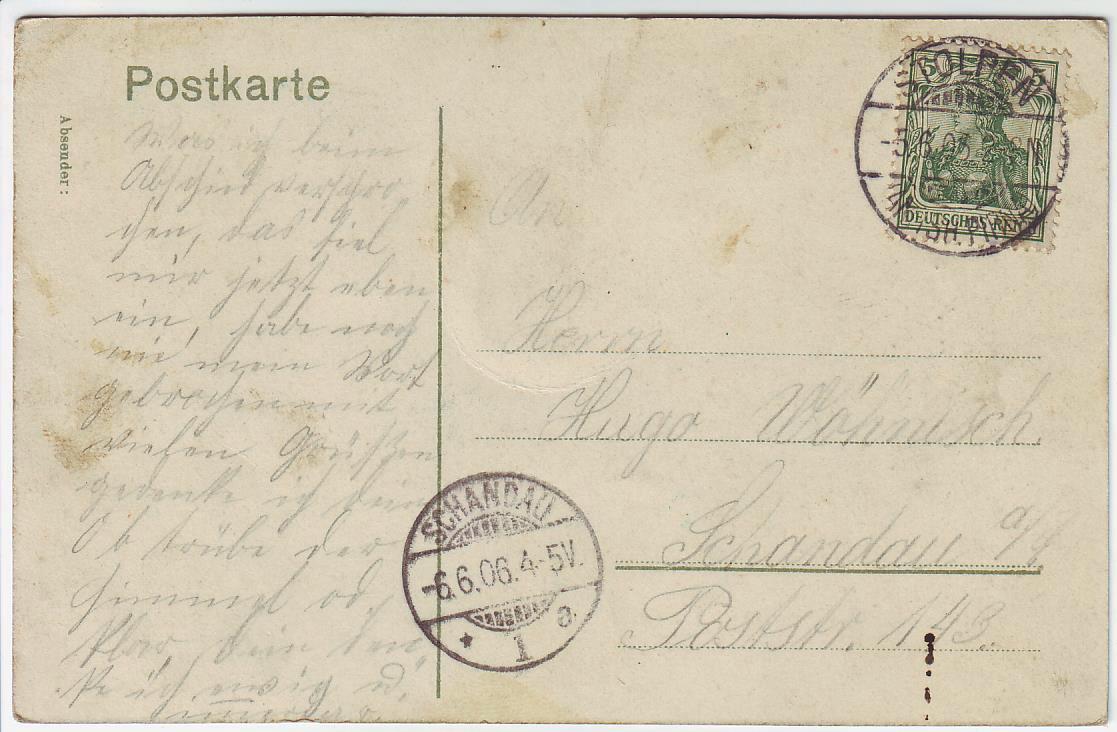 Postkarte
Absender:
Was ich beim
Abschied versproch
chen, das fiel
mir jetzt eben
ein, habe noch
nie mein Wort
gebrochen mit
vielen Grüßen
gedenke ich dein
Ob trübe der
Himmel od.
klar, dein den
ke ich ewig u.
immerdar.
STOLPEN
5 5
DEUTSCHES REICH
An
Herrn
Hugo Wöhnisch.
Schandau a/E
Poststr. 143.
SCHANDAU
-6.6.06.4-5V.
* 1 a.